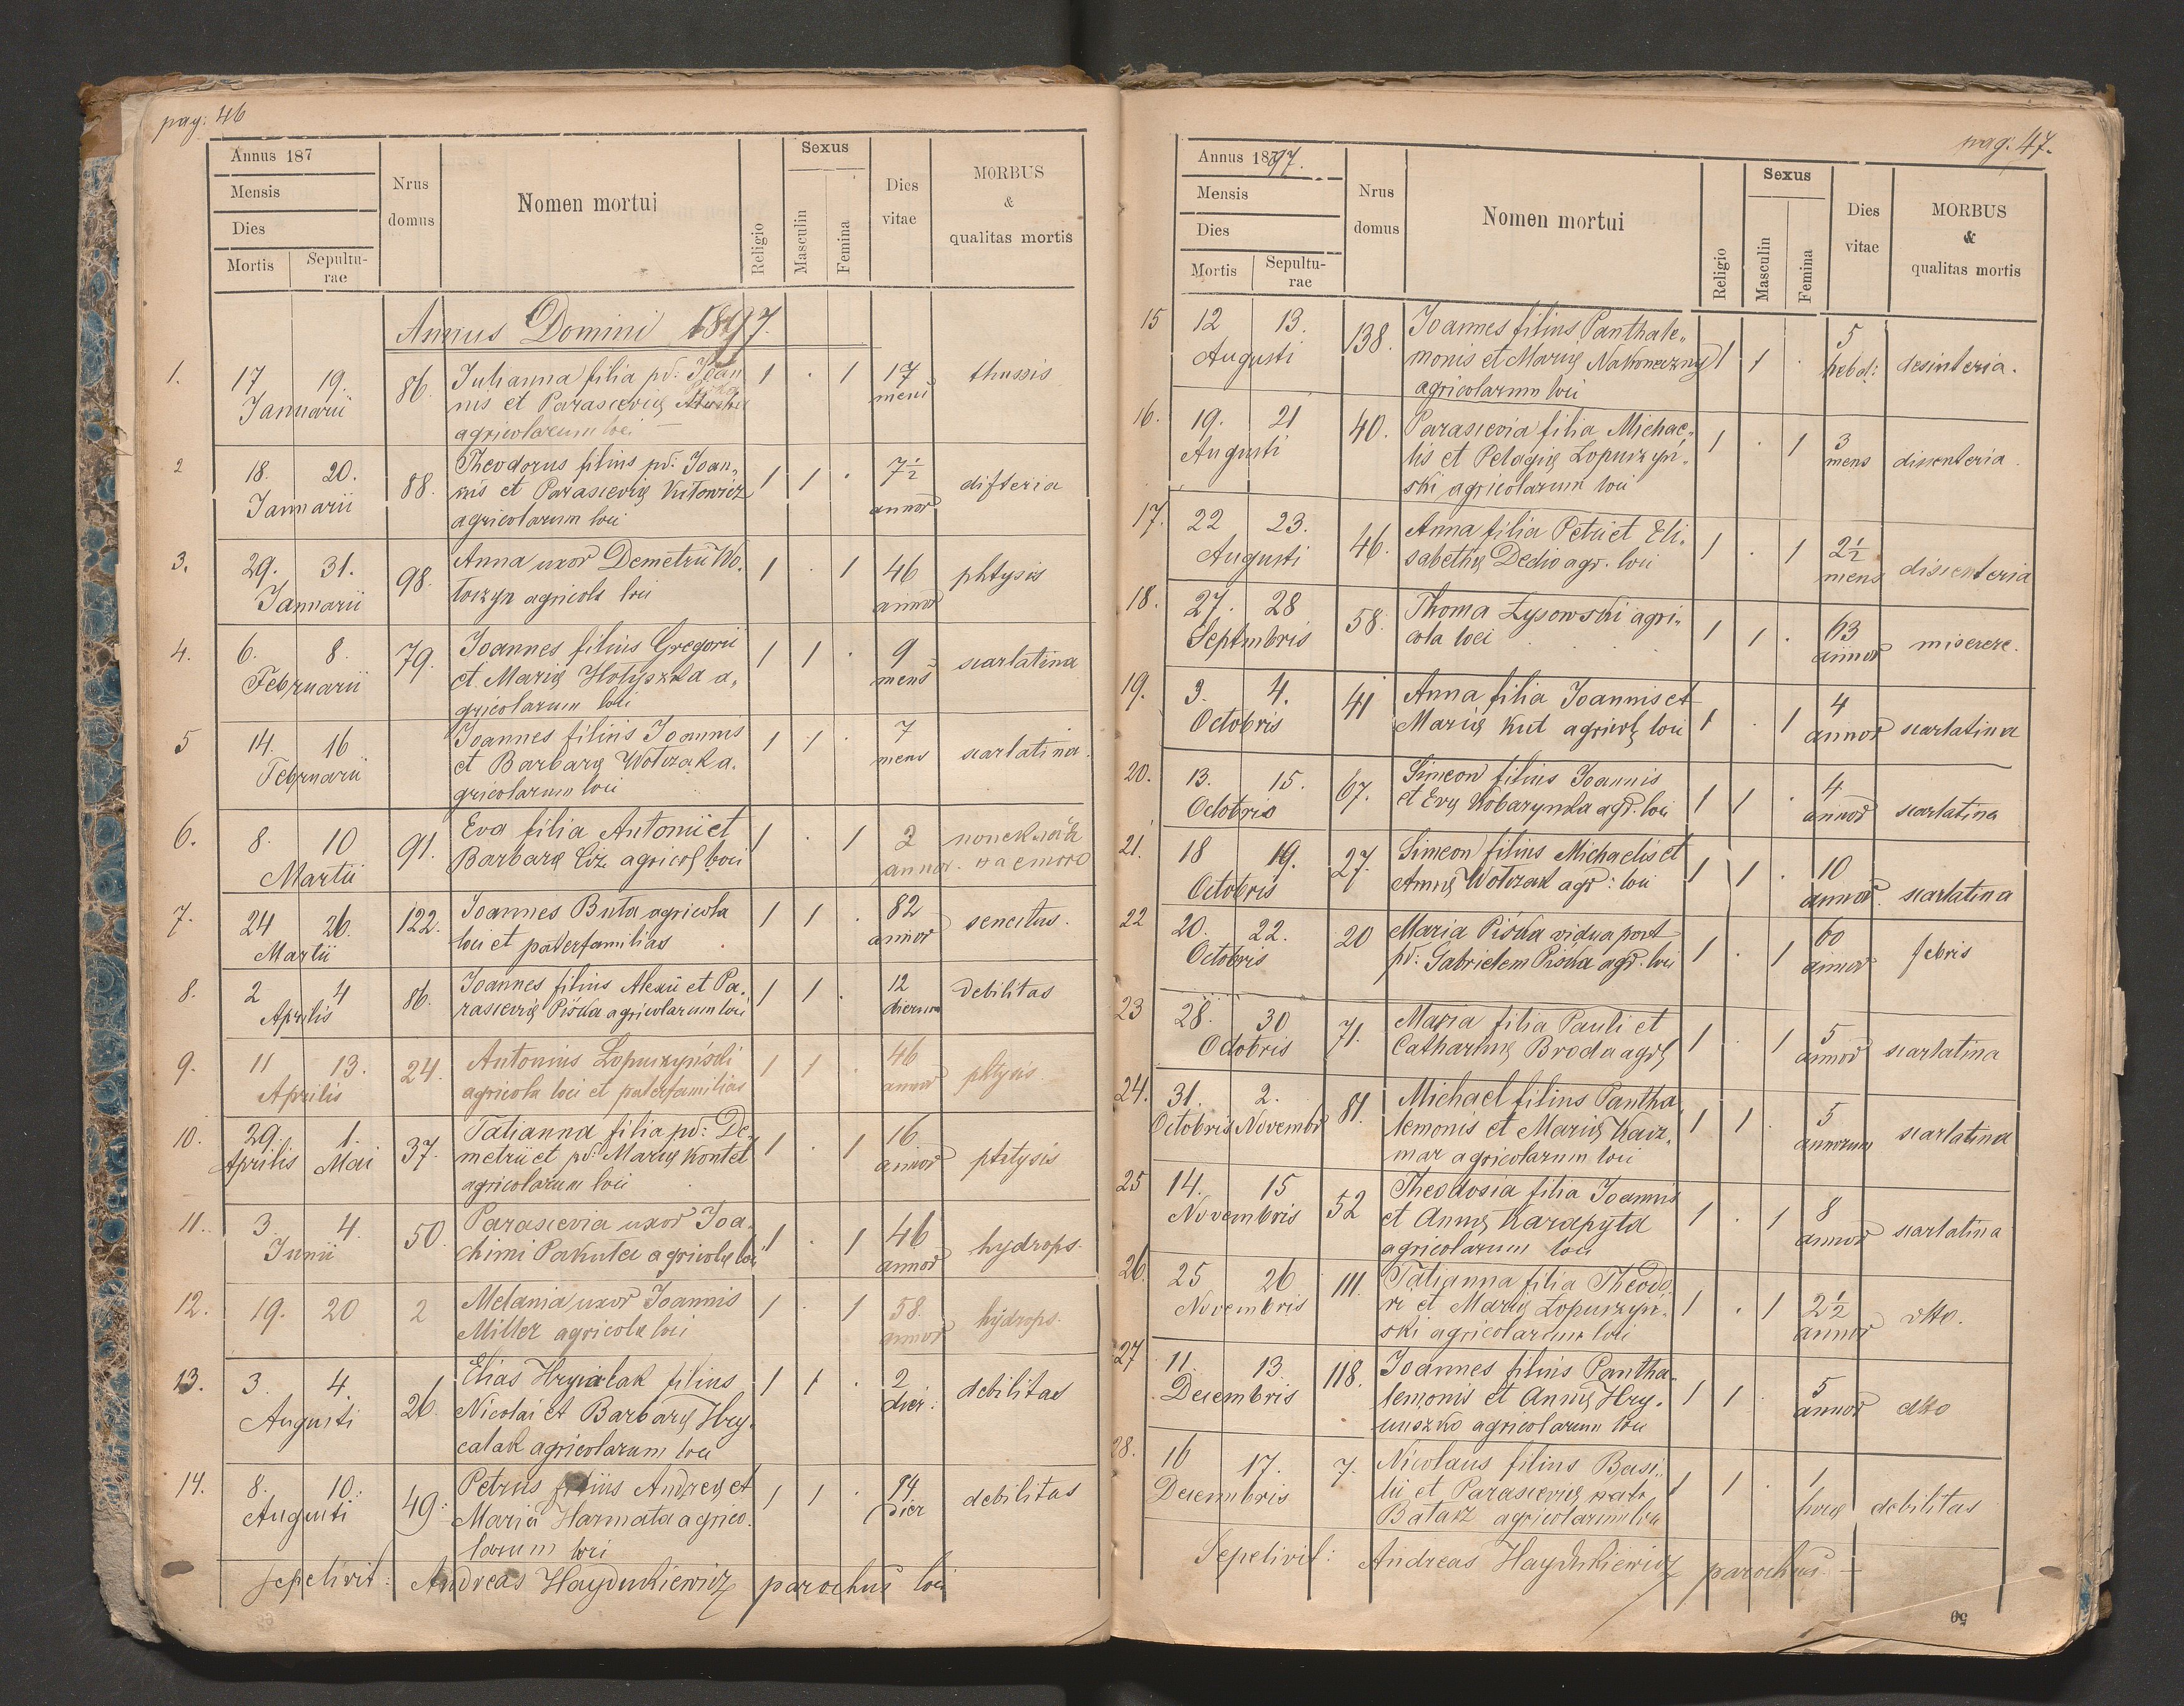 pag: 46
Annus 187
Mensis
Dies
Mortis
Sepultu-
rae
Nrus
domus
Nomen mortui
Religio
Sexus
Masculin
Femina
Dies
vitae
MORBUS
&
qualitas mortis
Annus Domini 1897.
1. 17 19. 86. Julianna filia pd: Joan 1 . 1 17 thussis
Januarii nis et Parascevię mens
agricolarum loci
2 18. 20. 88. Theodorus filius pd: Joan, 1 1 . 7½ difteria
Januarii nis et Parascevię Kutowicz annor
agricolarum loci
3. 29. 31. 98. Anna uxor Demetrii Wo, 1 . 1 46 phtysis
Januarii łoszyn agricolę loci annor
4. 6. 8. 79. Joannes filius Gregorii 1 1 . 9 scarlatina
Februarii et Marię Hołyszka a, mens
gricolarum loci
5 14. 16 Joannes filius Joannis 1 1 . 7 scarlatina.
Februarii et Barbarę Wołczak a. mens
gricolarum loci
6. 8. 10 91. Eva filia Antonii et 1 . 1 2
Martii Barbarę Ciz agricolę loci annor.
7. 24 26. 122. Joannes Buta agricola 1 1 . 82 senectus.
Martii loci et paterfamilias annor
8. 2 4 86. Joannes filius Alexii et Pa. 1 1 . 12 debilitas
Aprilis rascevię Piśka agricolarum loci dierum
9. 11 13. 24. Antonius Łopuszyński 1 1 . 46 phtysis
Aprilis agricola loci et paterfamilias annor
10. 29. 1. 37. Tatianna filia pd: De, 1 1 16 phtysis
Aprilis Mai metrii et pd: Marię Kontet annor
agricolarum loci
11. 3. 4. 50. Parascevia uxor Joa, 1 . 1 46 hydrops.
Junii chimi Pakuła agricolę loci annor
12. 19. 20 2 Melania uxor Joannis 1 . 1 58. hydrops.
Miller agricolę loci annor
13. 3. 4. 26. Elias Hrycalak filius 1 1 . 2 debilitas
Augusti Nicolai et Barbarę Hry, dier:
calak agricolarum loci
14. 8. 10. 49. Petrus filius Andreę et 1 1 . 14 debilitas
Augusti Maria Harmata agrico. Dier
larum loci
Sepelivit: Andreas Haydukiewicz parochus loci
pag: 47.
Annus 1897.
Mensis
Dies
Mortis
Sepultu-
rae
Nrus
domus
Nomen mortui
Religio
Sexus
Masculin
Femina
Dies
vitae
MORBUS
&
qualitas mortis
15 12 13. 138. Joannes filius Panthale, 1 1 . 5 desinteria.
Augusti monis et Marię Nakoneczny hebd:
agricolarum loci
16. 19. 21 40. Parascevia filia Michae, 1 . 1 3 dissenteria.
Augusti lis et Pelagię Łopuszyń, mens
ski agricolarum loci
17. 22 23. 46. Anna filia Petri et Eli, 1 . 1 2½ dissenteria
Augusti sabethę Dedio agr. loci mens
18. 27. 28 58. Thoma Łysowski agri, 1 1 . 63 miserere.
Septmbris cola loci annor
19. 3. 4. 41 Anna filia Joannis et 1 . 1 4 scarlatina
Octobris Marię Kut agricolę loci annor
20. 13. 15. 67. Simeon filius Joannis 1 1 . 4 scarlatina
Octobris et Evę Kobarynka agr. loci annor
21. 18 19. 27. Simeon filius Michaelis et 1 1 . 10 scarlatina
Octobris Annę Wołczak agr: loci annor.
22 20. 22. 20 Maria Piśka vidua post 1 . 1 60 febris
Octobris pd: Gabrielem Piśka agr. loci annor
23 28. 30 71. Maria filia Pauli et 1 . 1 5 scarlatina
Octobris Catharinę Broda agrę annor
24. 31. 2. 81. Michael filius Pantha, 1 1 . 5 scarlatina
Octobris Novembr lemonis et Marię Kacz, annorum
mar agricolarum loci
25 14. 15 52 Theodosia filia Joannis 1 . 1 8 scarlatina
Novembris et Annę Karapyta annor
agricolarum loci
26. 25 26 111. Tatianna filia Theodo, 1 . 1 2½ dto.
Novembris ri et Marię Łopuszyń, annor
ski agricolarum loci
27 11. 13. 118. Joannes filius Pantha, 1 1 . 5 dto
Desembris lemonis et Annę Hry, annor
uszko agricolarum loci
28. 16 17. 7. Nicolaus filius Basi, 1 1 . 1 debilitas
Desembris lii et Parascevię horę
Batakz agricolarum loci
Sepelivit: Andreas Haydukiewicz parochus
50